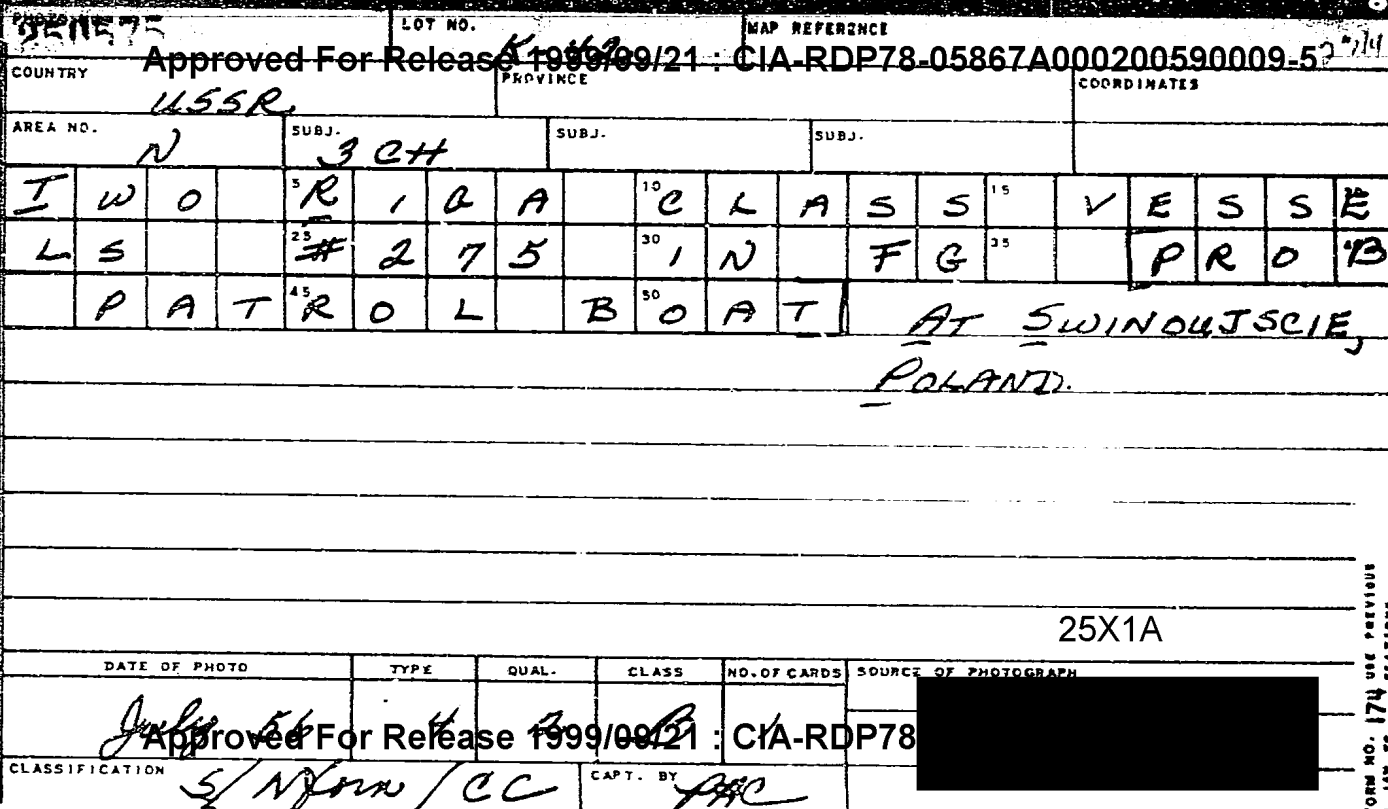 PHOTO NO. LOT NO. MAP REFERENCE
Approved For Release 1999/09/21 : CIA-RDP78-05867A000200590009-5
COUNTRY PROVINCE COORDINATES
USSR
AREA NO. SUBJ. SUBJ. SUBJ.
N 3 CH
TWO 5 RIGA 10 CLASS 15 VESSE
LS 25 #275 30 IN FG 35 PROB
PATROL 45 50 BOAT AT SWINOUJSCIE,
POLAND.
25X1A
DATE OF PHOTO TYPE QUAL. CLASS NO. OF CARDS SOURCE OF PHOTOGRAPH
July 56 4 2 B 1
Approved For Release 1999/09/21 : CIA-RDP78
CLASSIFICATION CAPT. BY
S/Nforn/CC
FORM NO. 174 USE PREVIOUS